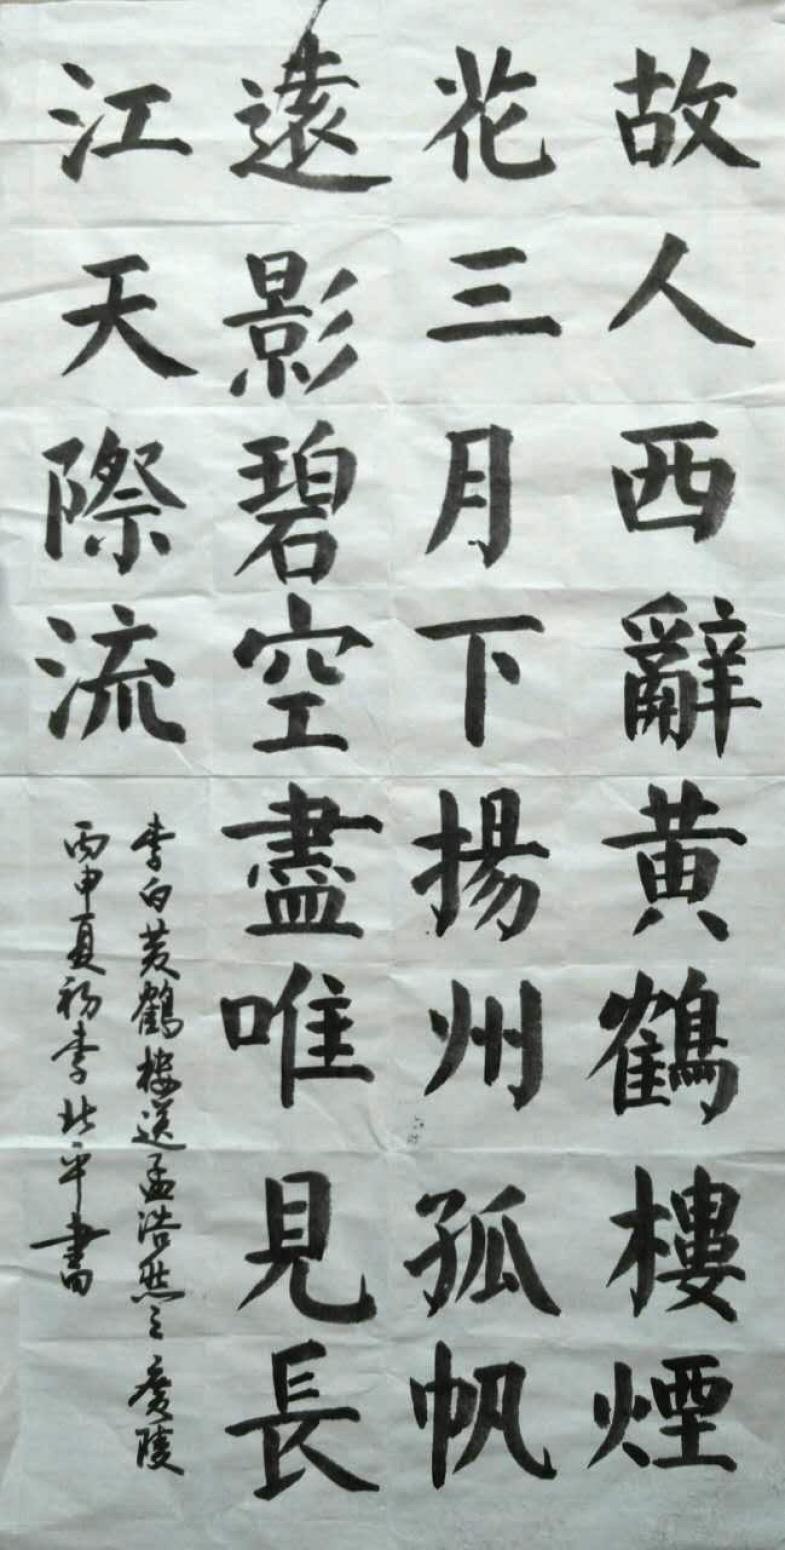 故人西辭黄鶴樓煙
花三月下揚州孤帆
遠影碧空盡唯見長
江天際流
李白黄鶴樓送孟浩然之廣陵
丙申夏初李北平書